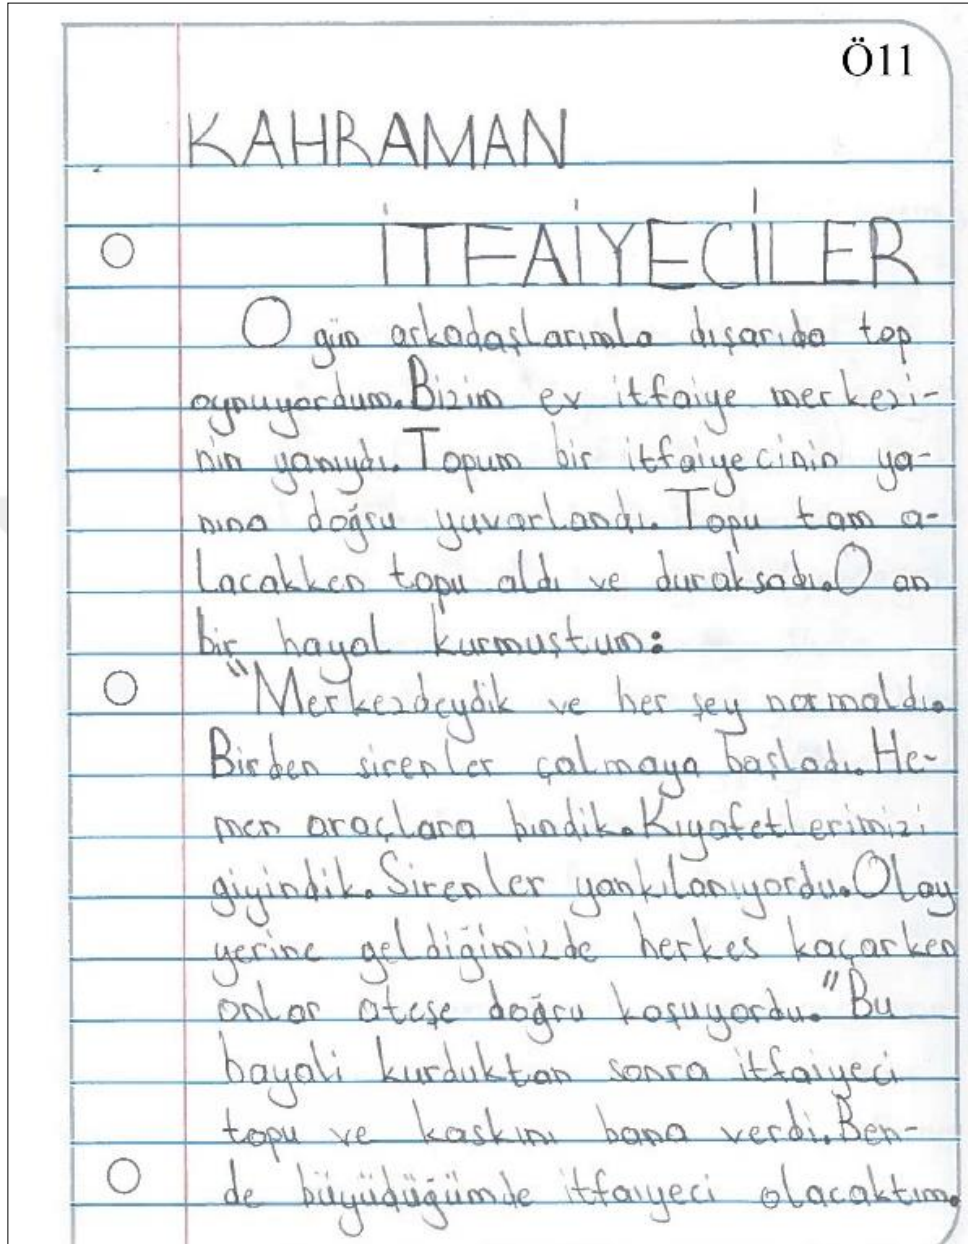 Ö11
KAHRAMAN
İTFAİYECİLER
O gün arkadaşlarımla dışarıda top
oynuyordum. Bizim ev itfaiye merkezi-
nin yanıydı. Topum bir itfaiyecinin ya-
nına doğru yuvarlandı. Topu tam a-
lacakken topu aldı ve duraksadı. O an
bir hayal kurmuştum:
"Merkezdeydik ve her şey normaldı.
Birden sirenler çalmaya başladı. He-
men araçlara bindik. Kıyafetlerimizi
giyindik. Sirenler yankılanıyordu. Olay
yerine geldiğimizde herkes kaçarken
onlar ateşe doğru koşuyordu." Bu
hayali kurduktan sonra itfaiyeci
topu ve kaskını bana verdi. Ben-
de büyüdüğümde itfaiyeci olacaktım.